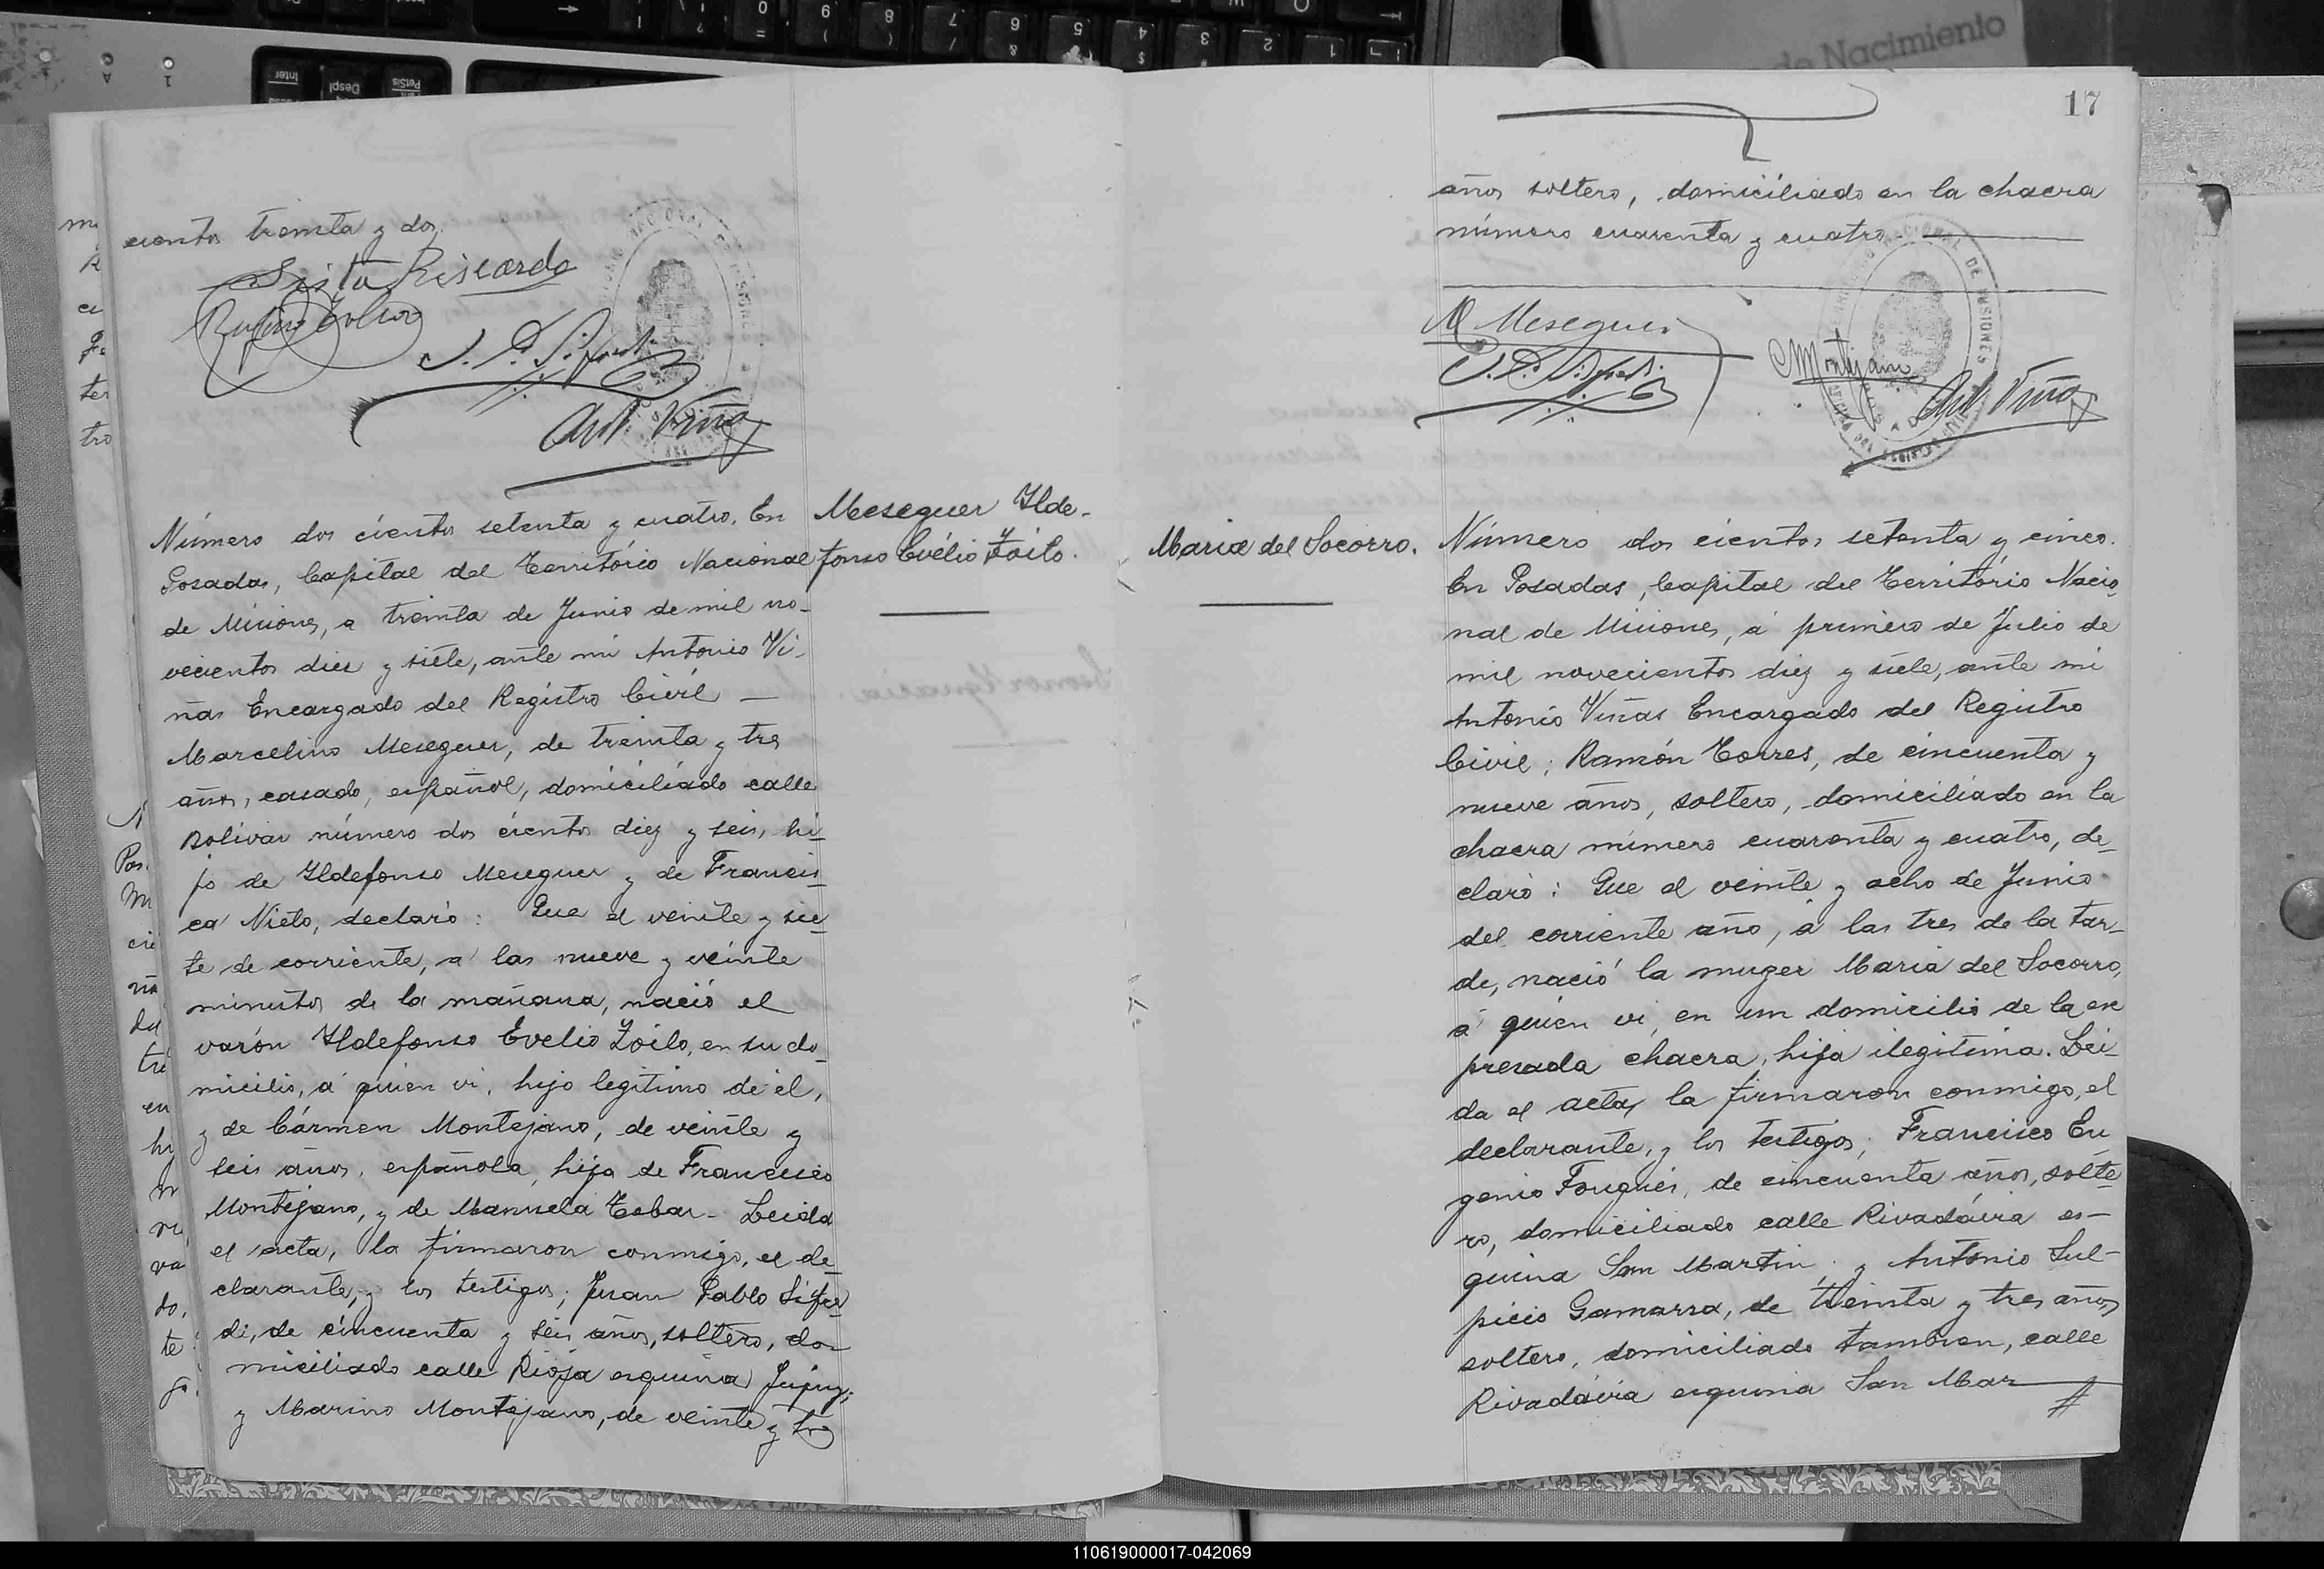 de Nacimiento
17
cientos treinta y dos.
Sista Riscardo
Ant. Viñas
Número dos cientos setenta y cuatro. En
Posadas, Capital del Território Nacional
de Misiones, a treinta de Junio de mil no-
vecientos diez y siete, ante mi Antonio Vi-
ñas Encargado del Registro Civil —
Marcelino Meseguer, de treinta y tres
años, casado, español, domiciliado calle
Bolívar número dos cientos diez y seis, hi-
jo de Ildefonso Meseguer y de Francis-
ca Nieto, declaró: Que el veinte y sie-
te de corriente, a las nueve y veinte
minutos de la mañana, nació el
varón Ildefonso Evelio Zoilo, en su do-
micilio, á quien vi, hijo legítimo de él,
y de Cármen Montejano, de veinte y
seis años, española, hija de Francisco
Montejano, y de Manuela Tebar- Leida
el acta, la firmaron conmigo, el de-
clarante, y los testigos; Juan Pablo Sifre-
di, de cincuenta y seis años, soltero, do-
miciliado calle Rioja esquina Jujuy;
y Marino Montejano, de veinte y tres
Meseguer Ilde-
fonso Evélio Zoilo.
años soltero, domiciliado en la chacra
número cuarenta y cuatro
M Meseguer
Montejano
Ant. Viñas
Maria del Socorro.
Número dos cientos setenta y cinco.
En Posadas, Capital del Território Nacio-
nal de Misiones, á primero de Julio de
mil novecientos diez y siete, ante mi
Antonio Viñas Encargado del Registro
Civil; Ramón Torres, de cincuenta y
nueve años, soltero, domiciliado en la
chacra número cuarenta y cuatro, de-
claró: Que el veinte y ocho de Junio
del corriente año, á las tres de la tar-
de, nació la muger Maria del Socorro,
á quien vi, en un domicilio de la ex
presada chacra, hija ilegitima. Lei-
da el acta, la firmaron conmigo, el
declarante, y los testigos; Francisco Eu
genio Fougués, de cincuenta años, solte-
ro, domiciliado calle Rivadávia es-
quina San Martin; y Antonio Sul-
picio Gamarra, de treinta y tres años,
soltero, domiciliado tambien, calle
Rivadávia esquina San Mar
110619000017-042069